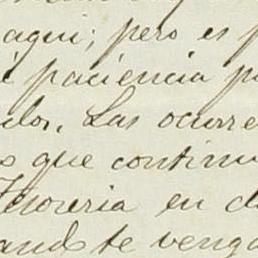 aqui; pero es
paciencia
Las ocurre
que continu
Tesoreria en
te venga